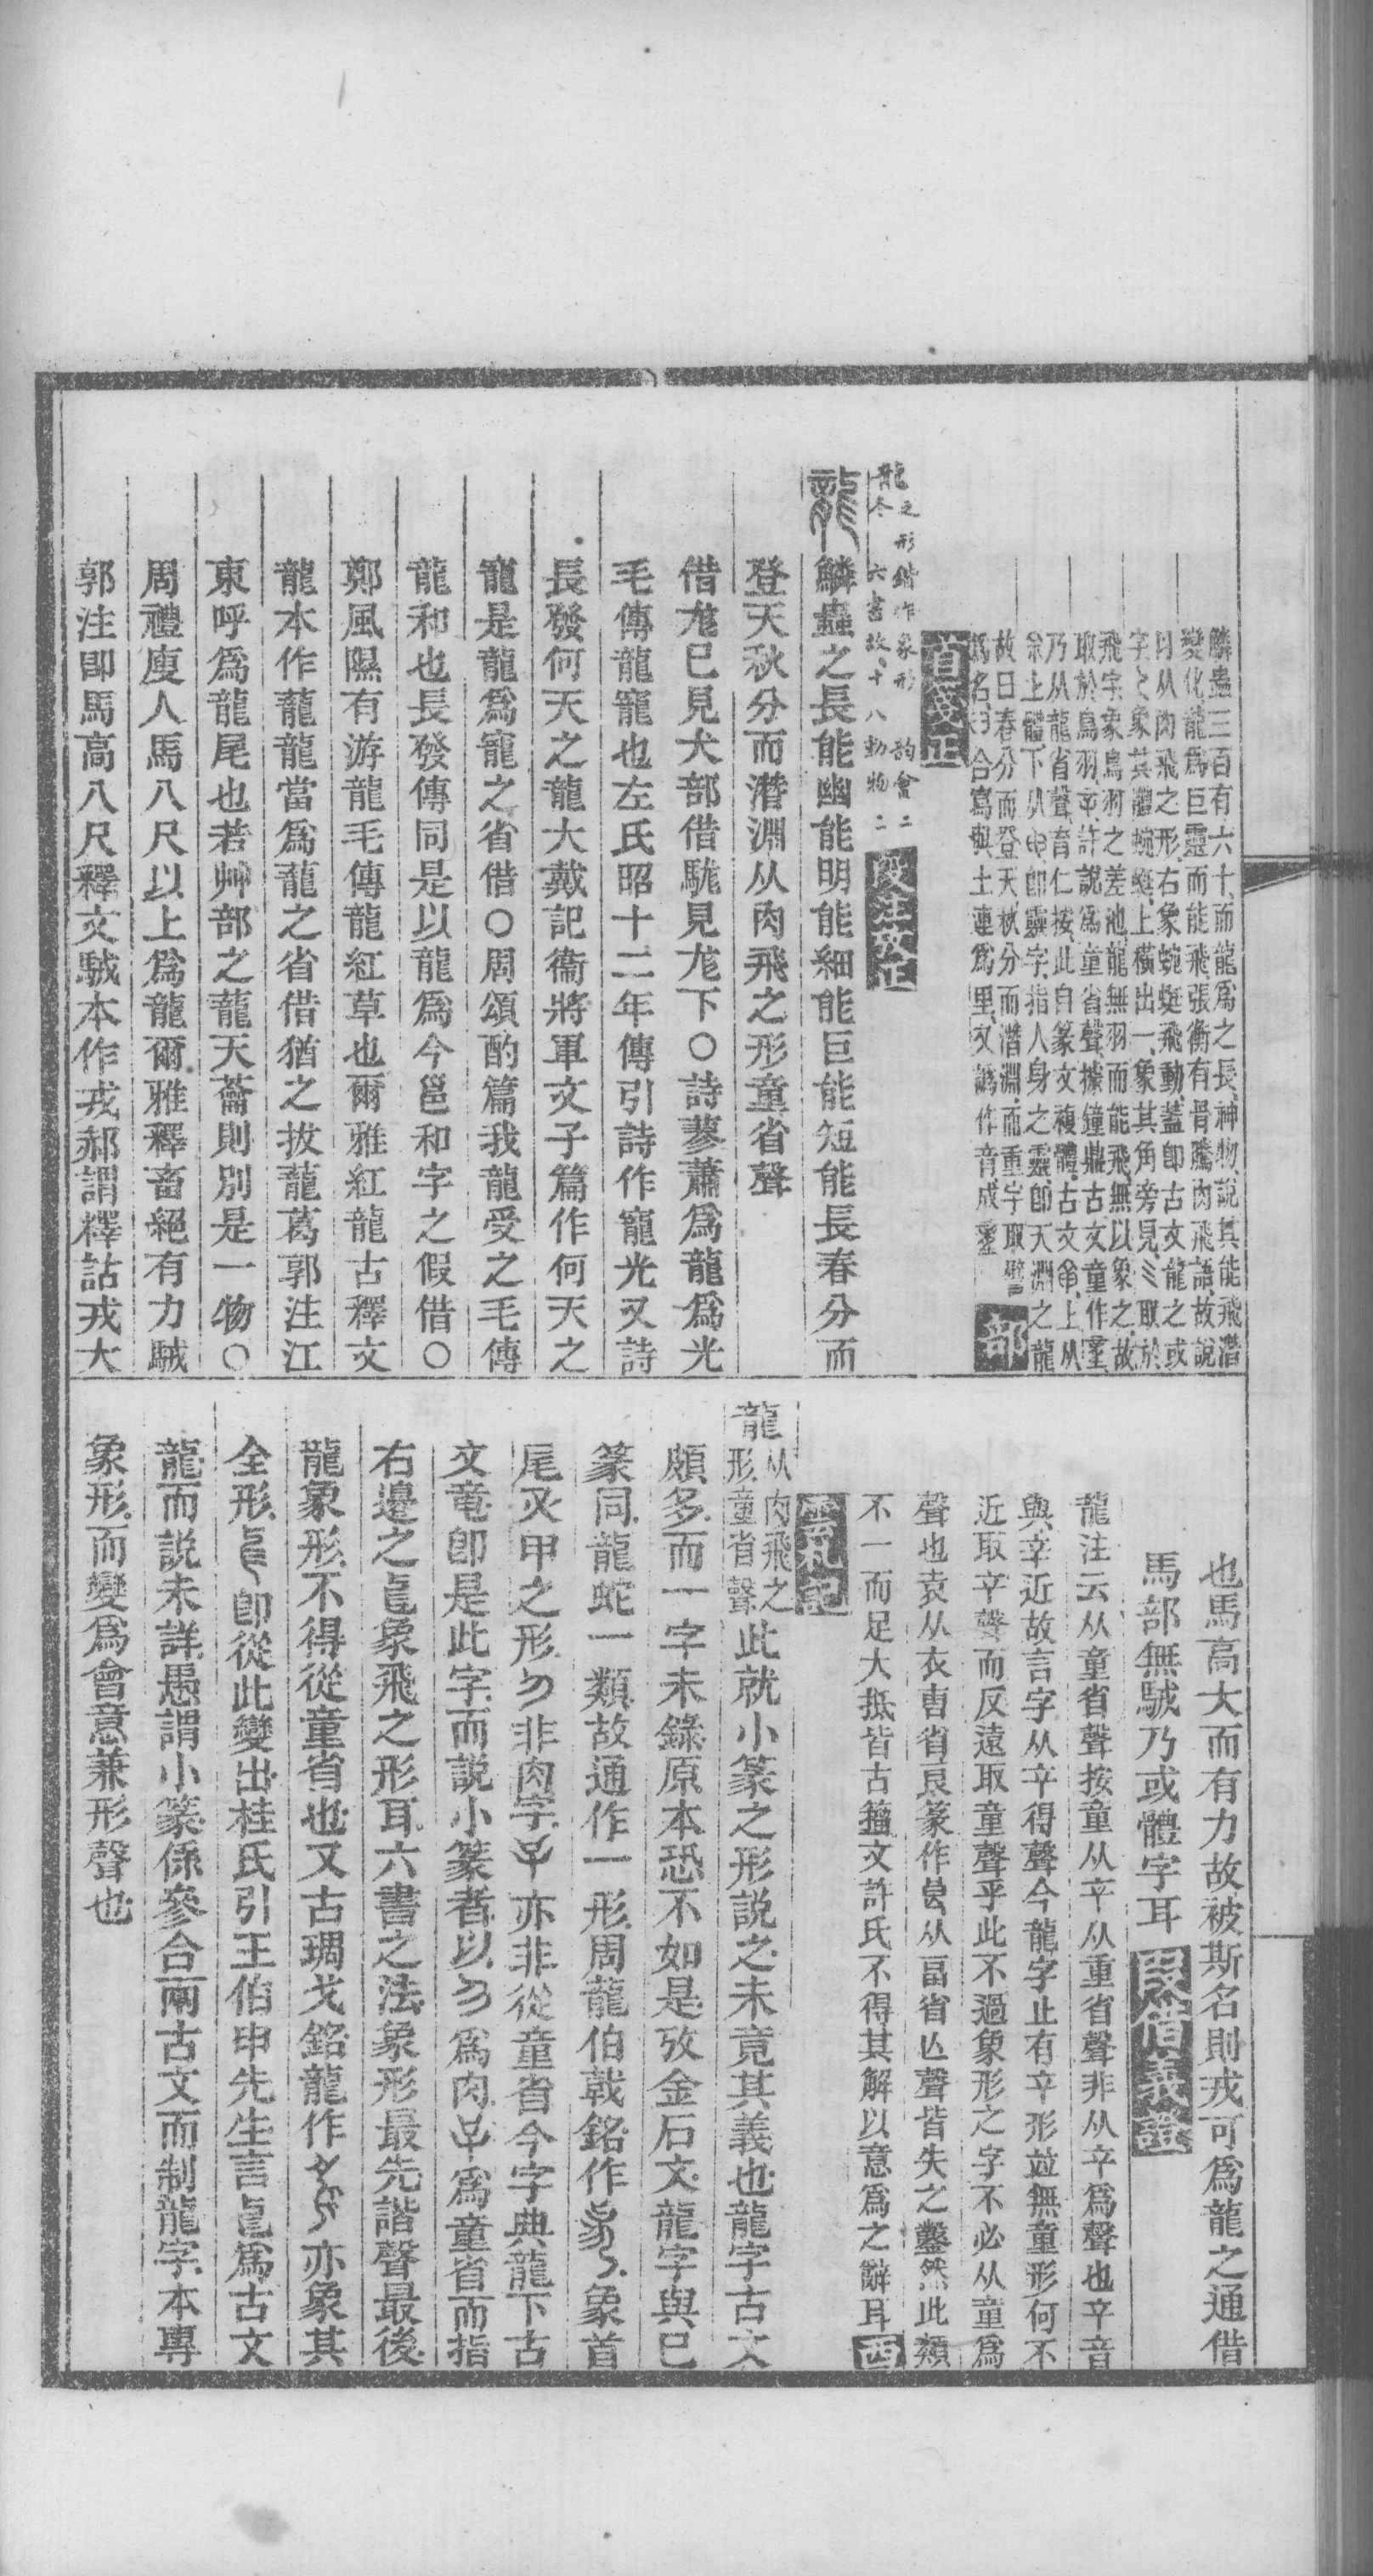 鱗蟲三百有六十、而龍爲之長、神物、說其能飛潛
變化、龍爲巨靈而能飛、張衡有骨騰肉飛語、故說
曰从肉飛之形、右象蜿蜒飛動、蓋卽古文龍之或
字、象其體蜿蜒、上橫出一、象其角旁見、取於
飛字、象鳥羽之差池、龍無羽而能飛、無以象之、故
取於鳥羽、許說爲童省聲、據鐘鼎古文童作
乃从龍省聲、育仁按、此自篆文複體、古文上从
上體、下从卽靈字、指人身之靈、卽天淵之龍
故曰春分而登天、秋分而潛淵、而重字取
爲名、合寫與土連爲里、又譌作音、成
部
首箋正
龍之形鍇作象形韵會二
龍冬六書故十八動物二
段注攷正
龍鱗蟲之長能幽能明能細能巨能短能長春分而
登天秋分而潛淵从肉飛之形童省聲
借尨已見犬部借駹見尨下○詩蓼蕭爲龍爲光
毛傳龍寵也左氏昭十二年傳引詩作寵光又詩
長發何天之龍大戴記衞將軍文子篇作何天之
寵是龍爲寵之省借○周頌酌篇我龍受之毛傳
龍和也長發傳同是以龍爲今邕和字之假借○
鄭風隰有游龍毛傳龍紅草也爾雅紅龍古釋文
龍本作蘢龍當爲蘢之省借猶之拔蘢葛郭注江
東呼爲龍尾也若艸部之蘢天蘥則別是一物○
周禮廋人馬八尺以上爲龍爾雅釋畜絕有力駥
郭注卽馬高八尺釋文駥本作戎郝謂釋詁戎大
也馬高大而有力故被斯名則戎可爲龍之通借
馬部無駥乃或體字耳
龍注云从童省聲按童从䇂从重省聲非从辛爲聲也䇂音
與辛近故言字从䇂得聲今龍字止有䇂形並無童形何不
近取䇂聲而反遠取童聲乎此不過象形之字不必从童爲
聲也袁从衣叀省良篆作从畐省亾聲皆失之鑿然此類
不一而足大抵皆古籀文許氏不得其解以意爲之辭耳
龍从肉飛之形童省聲此就小篆之形說之未竟其義也龍字古文
頗多而一字未錄原本恐不如是攷金石文龍字與巳
篆同龍蛇一類故通作一形周龍伯戟銘作象首
尾爪甲之形非肉字亦非從童省今字典龍下古
文竜卽是此字而說小篆者以爲肉爲童省而指
右邊之象飛之形耳六書之法象形最先諧聲最後
龍象形不得從童省也又古琱戈銘龍作亦象其
全形卽從此變出桂氏引王伯申先生言爲古文
龍而說未詳愚謂小篆係參合兩古文而制龍字本專
象形而變爲會意兼形聲也